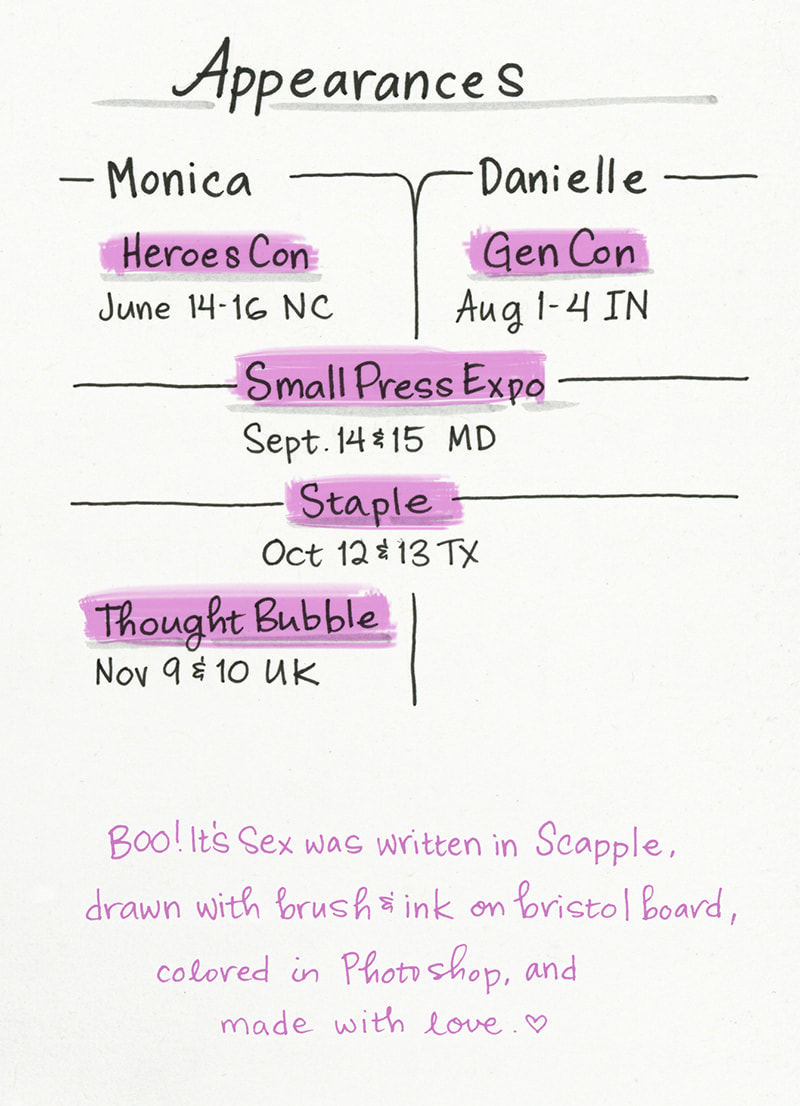 Appearances
Monica
Danielle
Heroes Con
June 14-16 NC
Gen Con
Aug 1-4 IN
Small Press Expo
Sept. 14 & 15 MD
Staple
Oct 12 & 13 TX
Thought Bubble
Nov 9 & 10 UK
Boo! It's Sex was written in Scapple,
drawn with brush & ink on bristol board,
colored in Photoshop, and
made with love. ♡